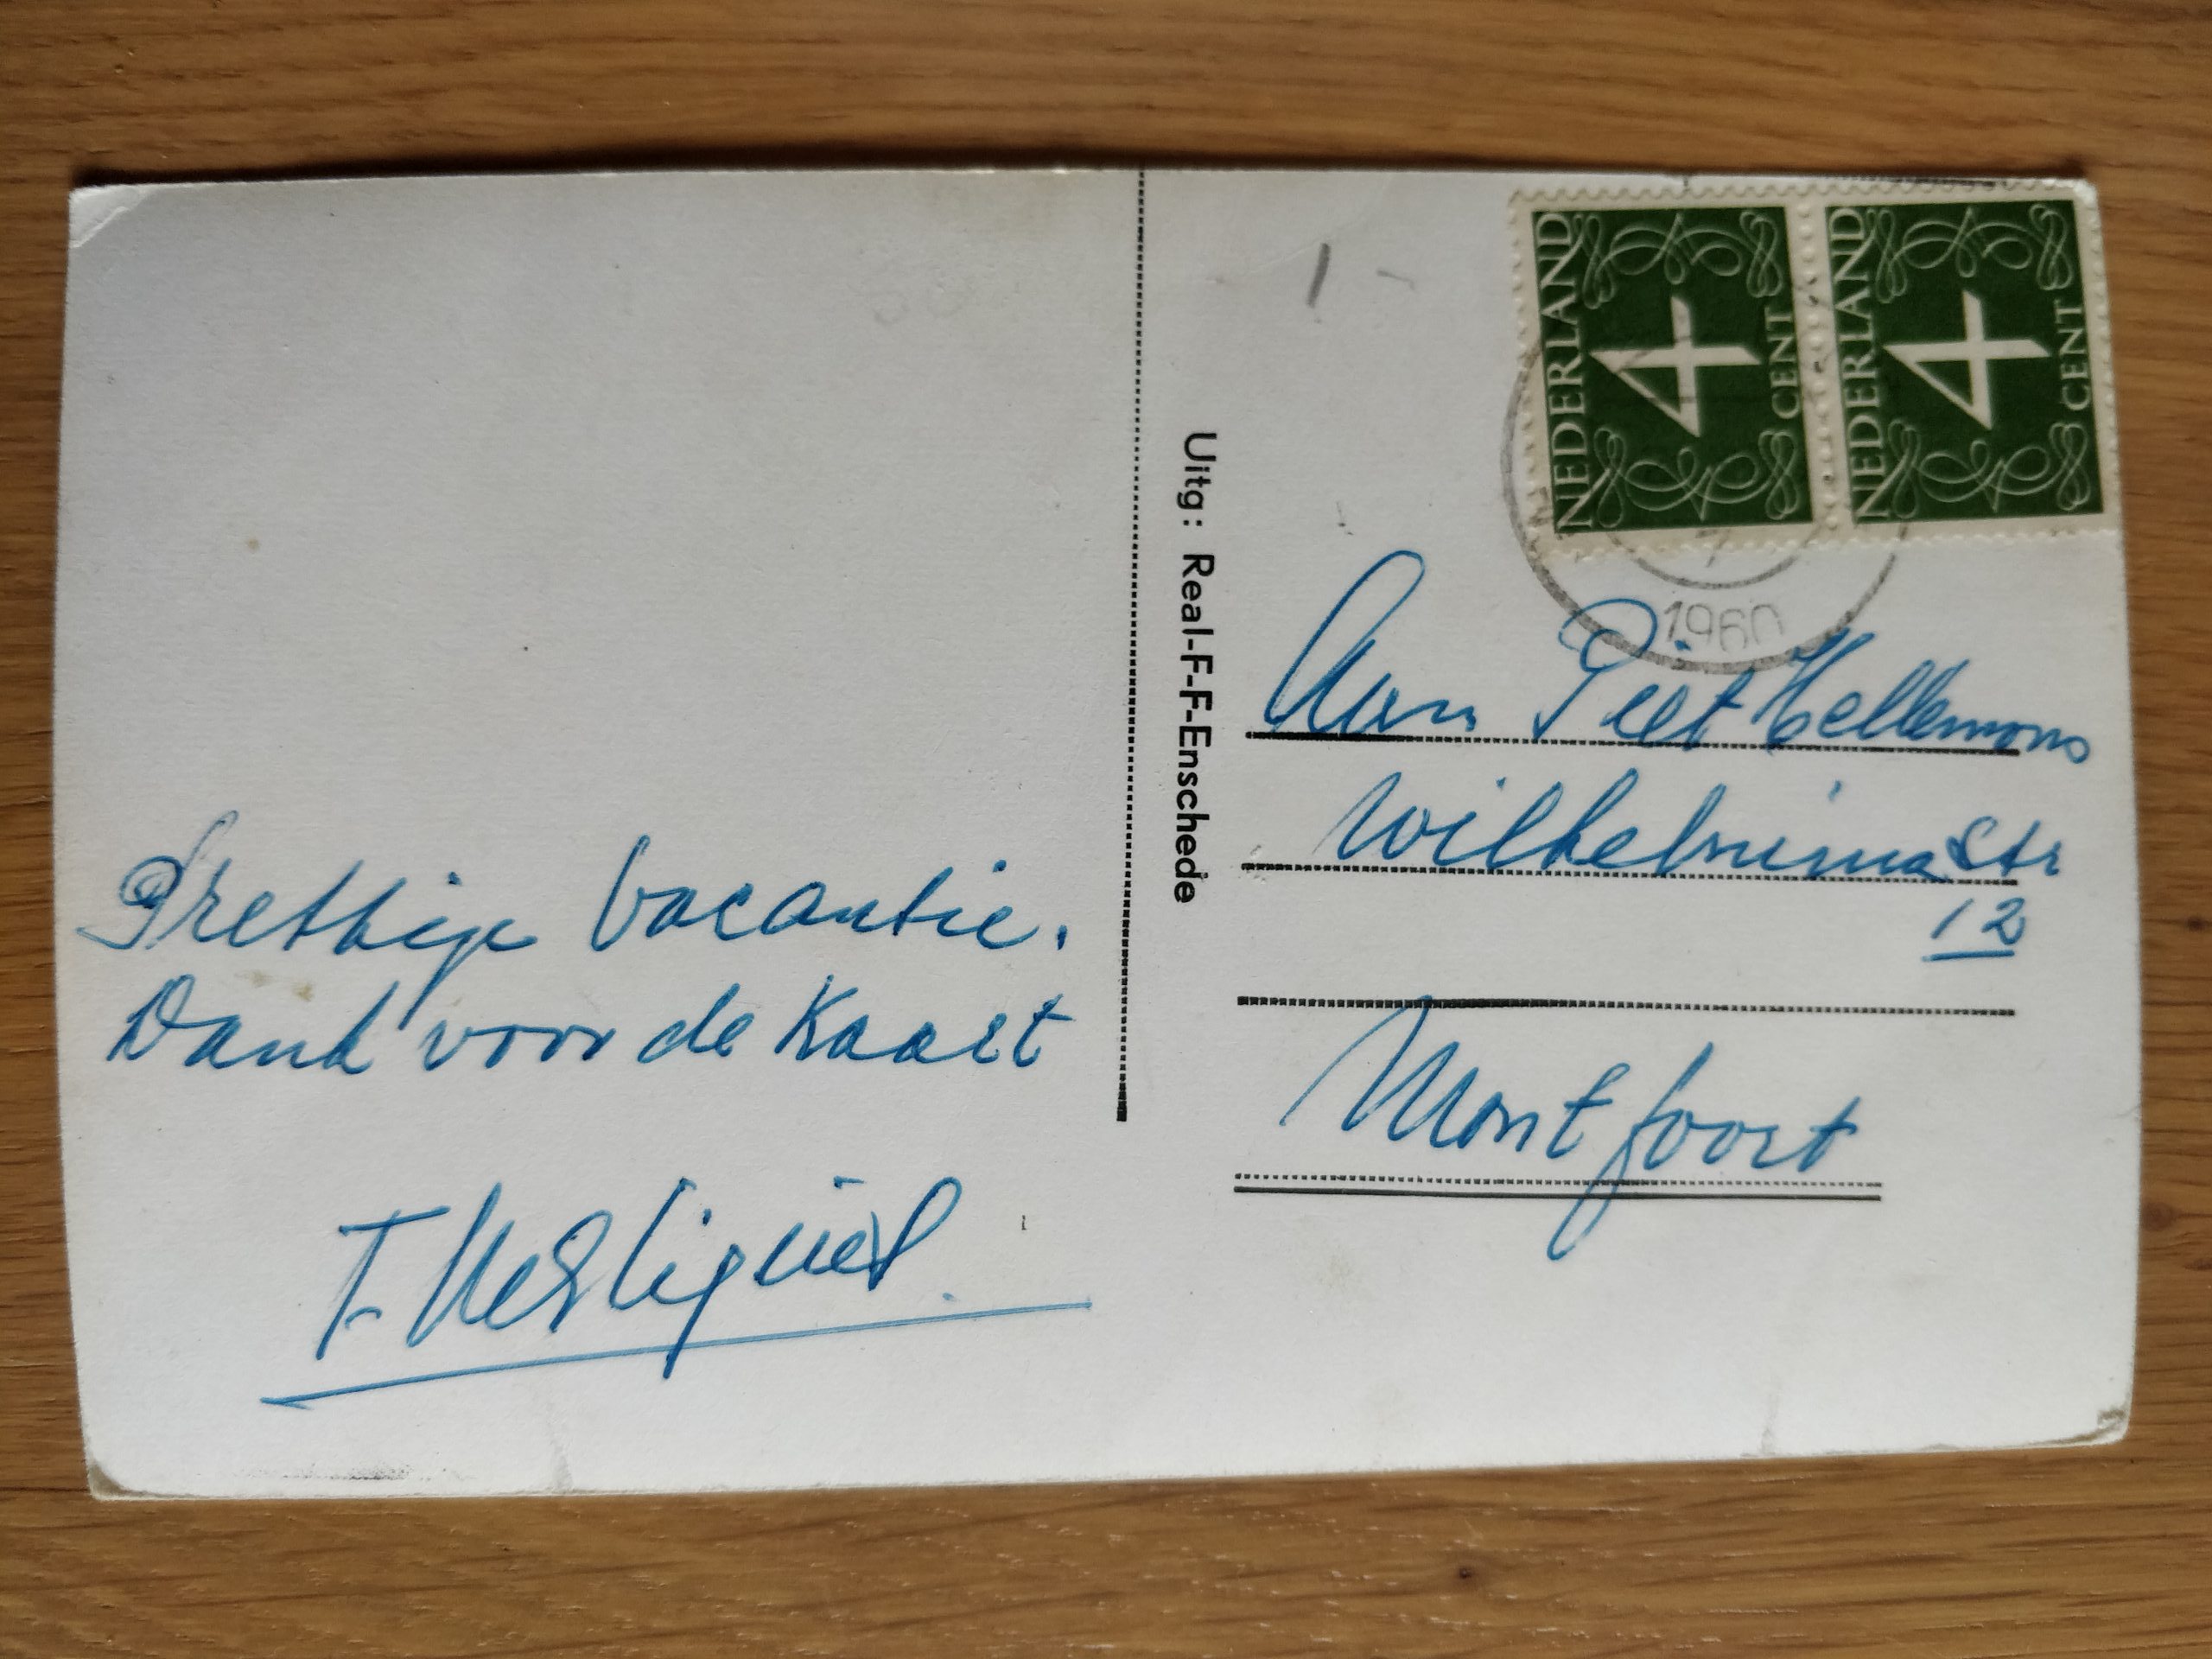 Prettige Vacantie.
Dank voor de Kaart
Uitg: Real-F-F-Enschede
NEDERLAND
4
CENT
NEDERLAND
4
CENT
1960
Aan Piet Hellemons
Wilhelmina Str
12
Montfoort